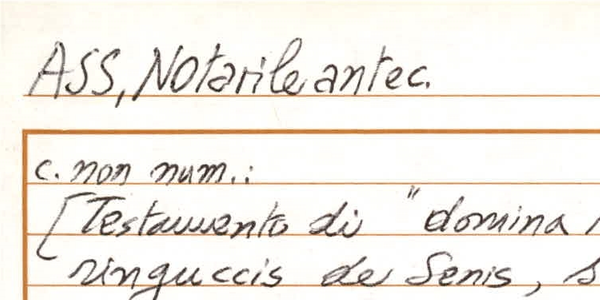 ASS, Notarile antec.
c. non num.:
[Testamento di "domina
ringuccis de Senis,